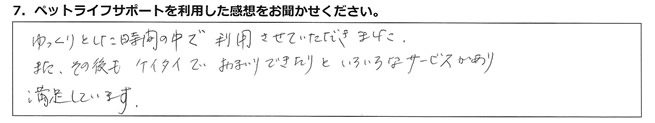 7. ペットライフサポートを利用した感想をお聞かせください。
ゆっくりとした時間の中で利用させていただきました。
また、その後もケイタイでおまいりできたりといろいろなサービスがあり
満足しています。